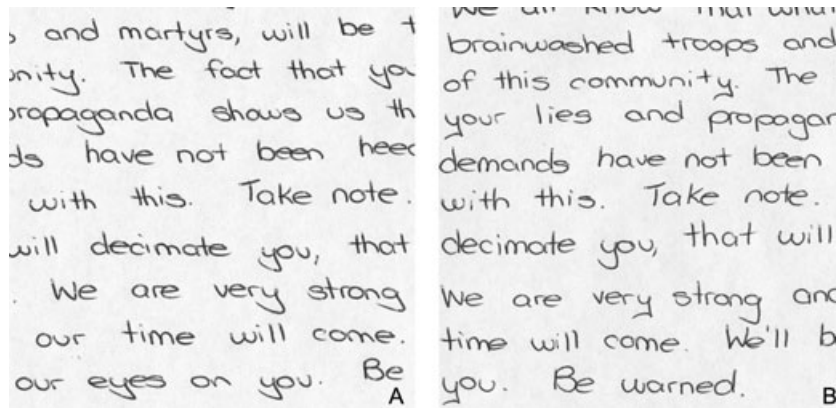 and martyrs, will be
The fact that you
shows us
have not been
with this. Take note.
will decimate you, that
We are very strong
our time will come.
our eyes on you. Be
A
We all know that what
brainwashed troops and
of this community. The
your lies and
demands have not been
with this. Take note.
decimate you, that will
We are very strong
time will come. We'll
you. Be warned.
B